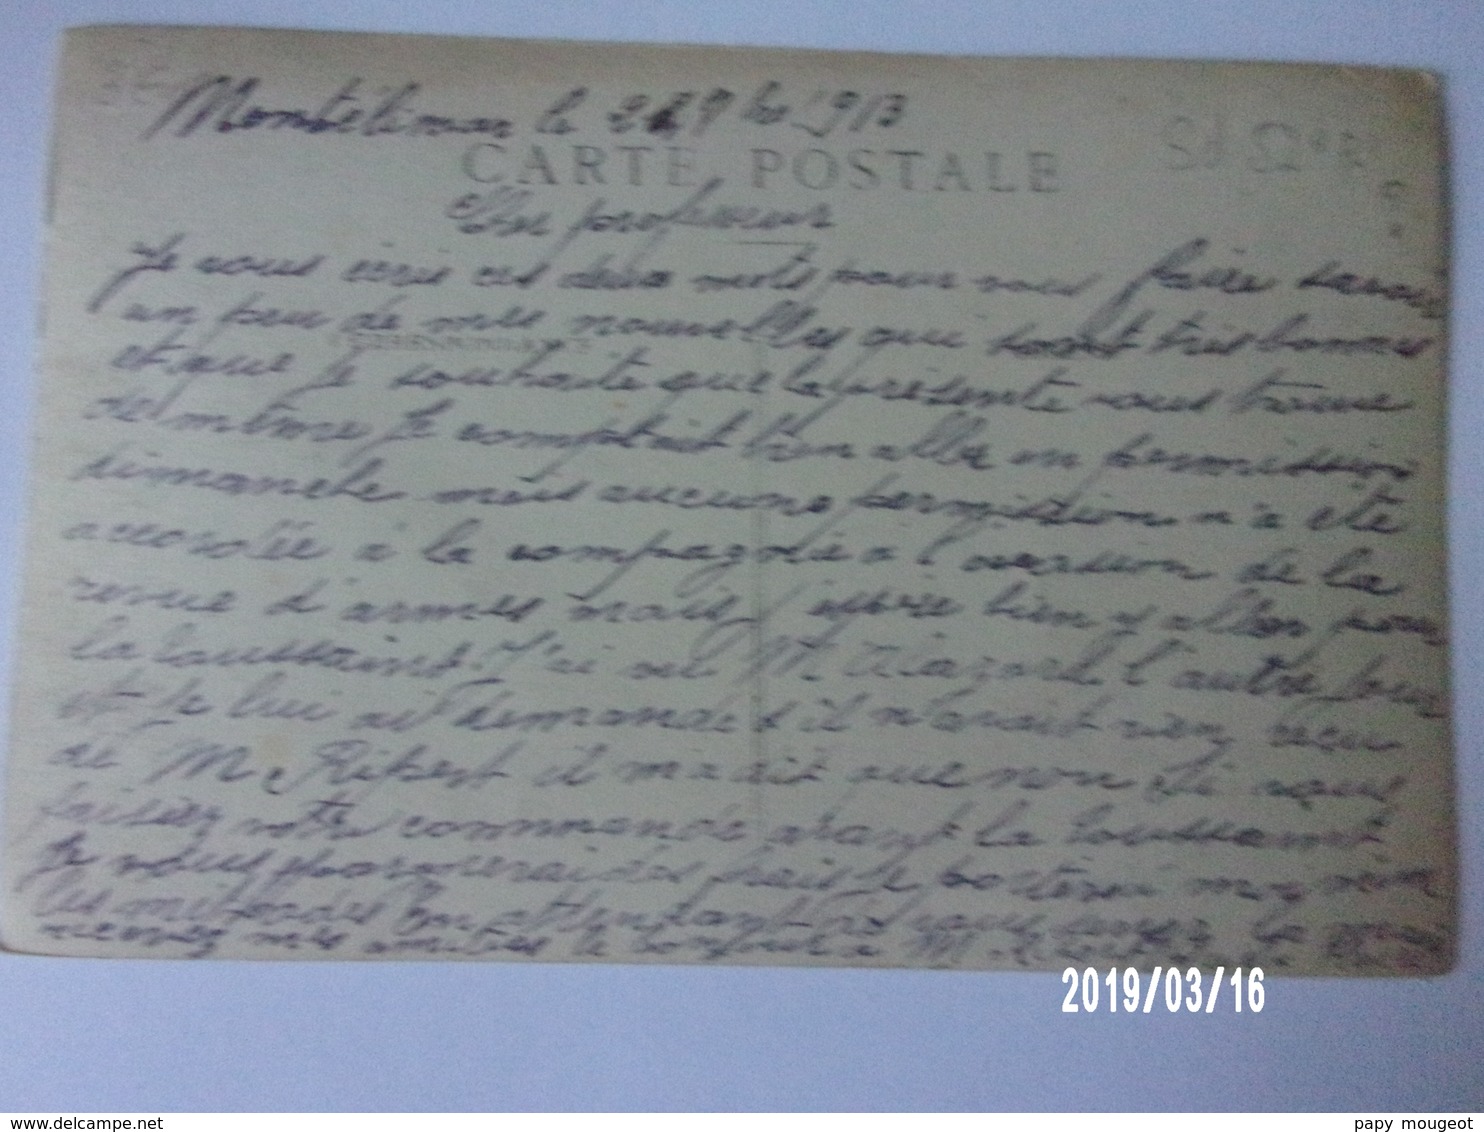 Montélimar le 2 9bre 1913
CARTE POSTALE
professeur
Je vous écris ces deux mots pour vous faire savoir
un peu de mes nouvelles que sont très bonnes
et que je souhaite que la présente vous trouve
de même Je comptait bien aller en permission
dimanche mais aucune permission n'a été
accordée à la compagnie a l'occasion de la
revue d'armes mais j'espère bien y aller pour
la Toussaint. J'ai vu M. l'autre jour
et je lui ai demandé s'il n'avait rien reçu
de M. Ripert il m'a dit que non si vous
faisiez votre commande avant la Toussaint
je vous des frais je
les méthodes En attendant
recevez mes amitiés le bonjour à M.
2019/03/16
delcampe.net
papy mougeot